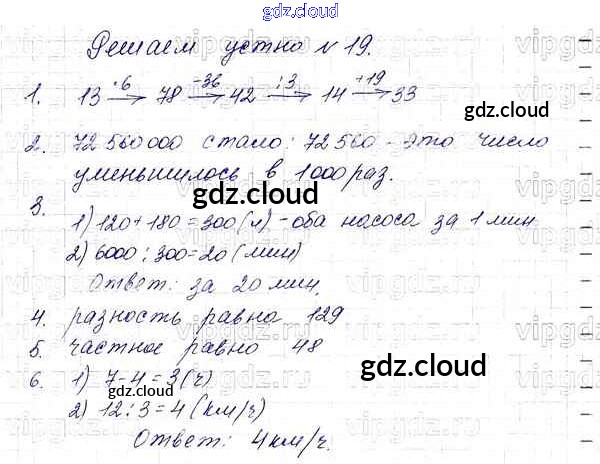 gdz.cloud
Решаем устно №19.
1. 13 ·6→ 78 -36→ 42 :3→ 14 +19→ 33
gdz.cloud
2. 72 560 000 стало: 72 560 - это число
уменьшилось в 1000 раз.
gdz.cloud
3.
1) 120+180=300(л) - оба насоса за 1 мин
2) 6000:300=20 (мин)
gdz.cloud
Ответ: за 20 мин.
4. разность равна 129
5. частное равно 48
gdz.cloud
6. 1) 7-4=3(ч)
gdz.cloud
2) 12:3=4 (км/ч)
Ответ: 4км/ч.